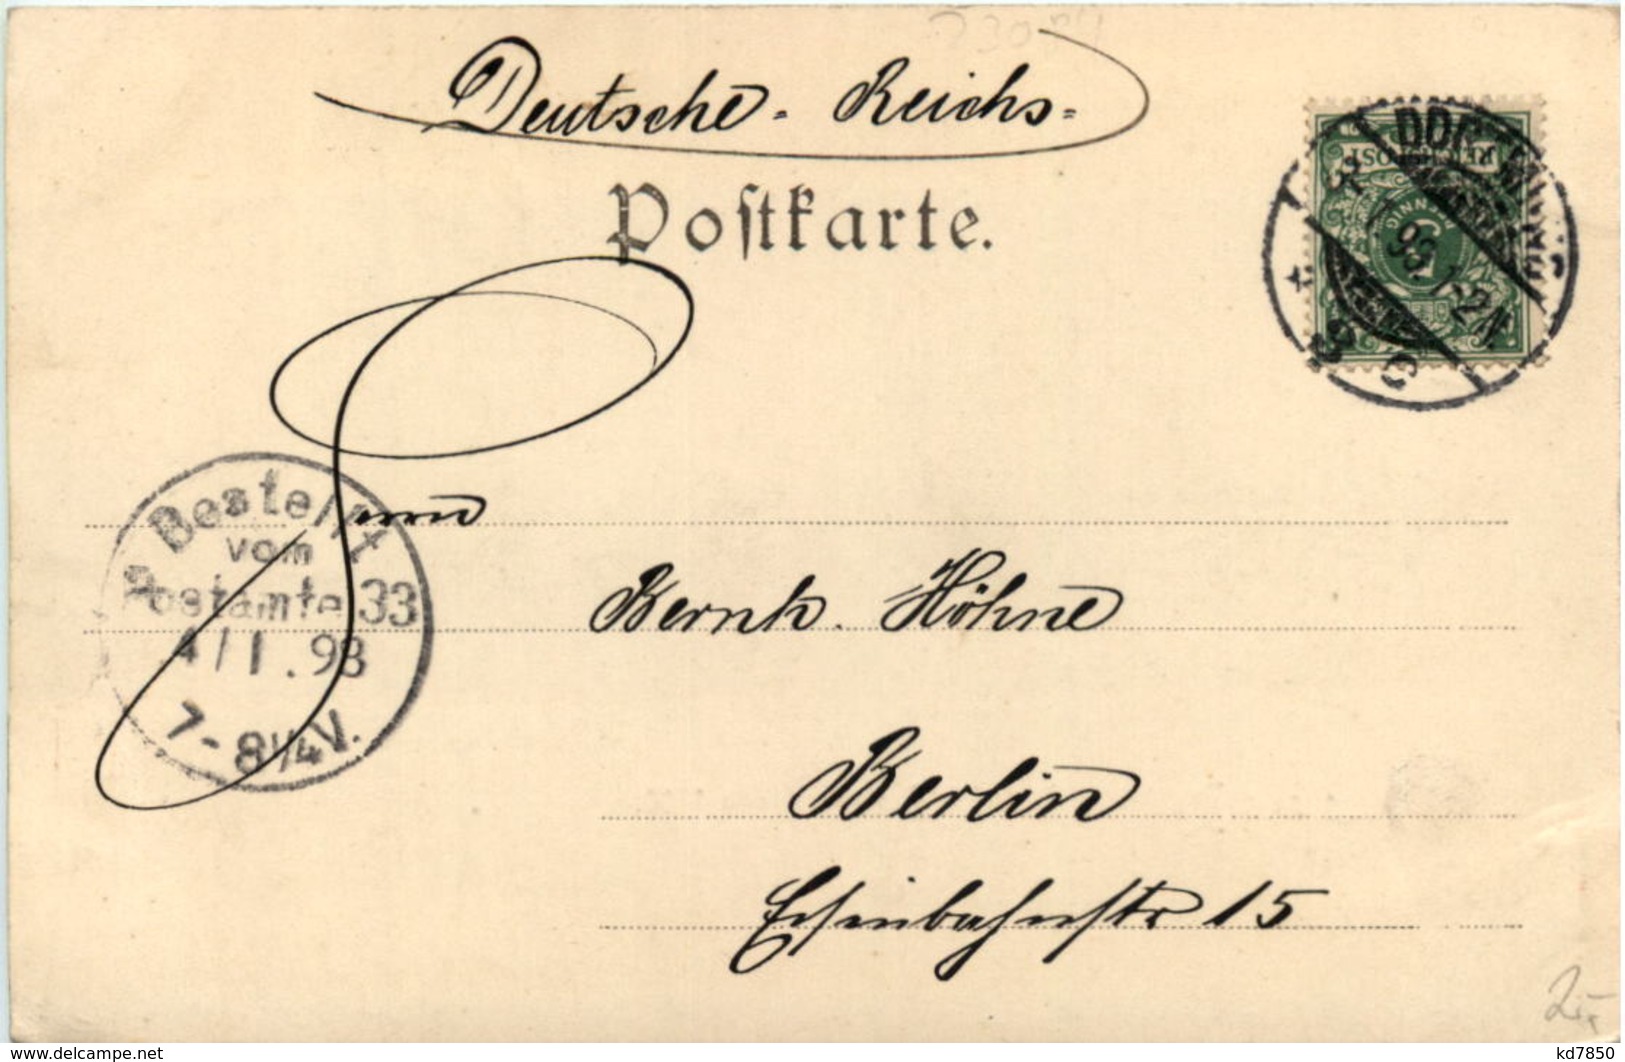 Deutsche - Reichs =
Postkarte.
REICHSPOST
5
PFENNIG
98 1-2N.
Bestellt
vom
Postamte 33
4/1.98
7-8¼V.
Herrn
Bernh. Höhne
Berlin
Eisenbahnstr 15
www.delcampe.net
kd7850